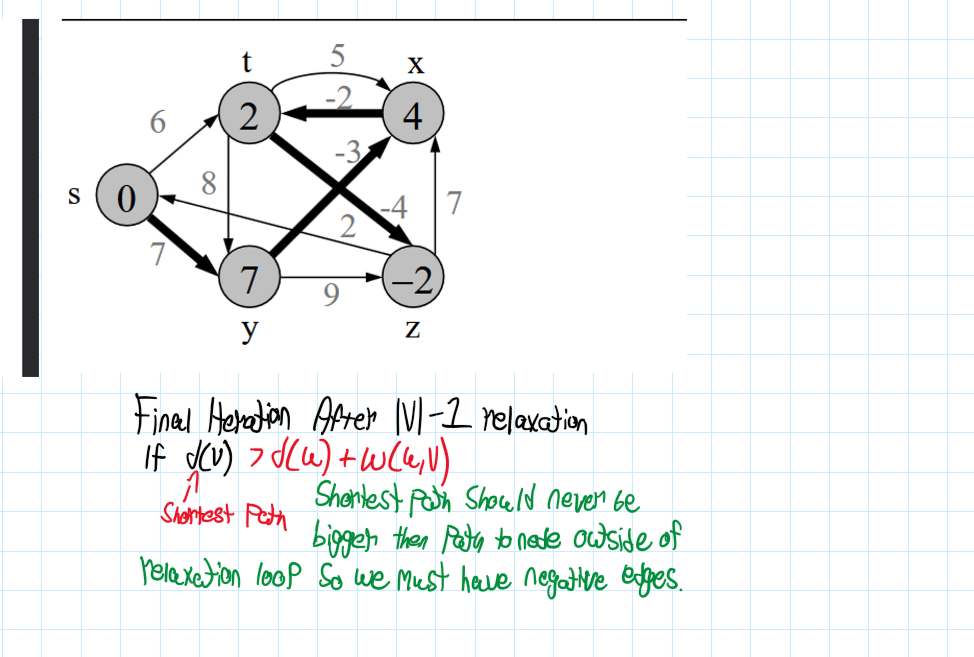 t 5 x
2 -2 4
6 -3
s 0 8 -4 7
7 2
7 9 –2
y z
Final Iteration After |V|-1 relaxation
If d(v) > d(u) + w(u,v)
Shortest Path Shortest path should never be
bigger then path to node outside of
relaxation loop so we must have negative edges.